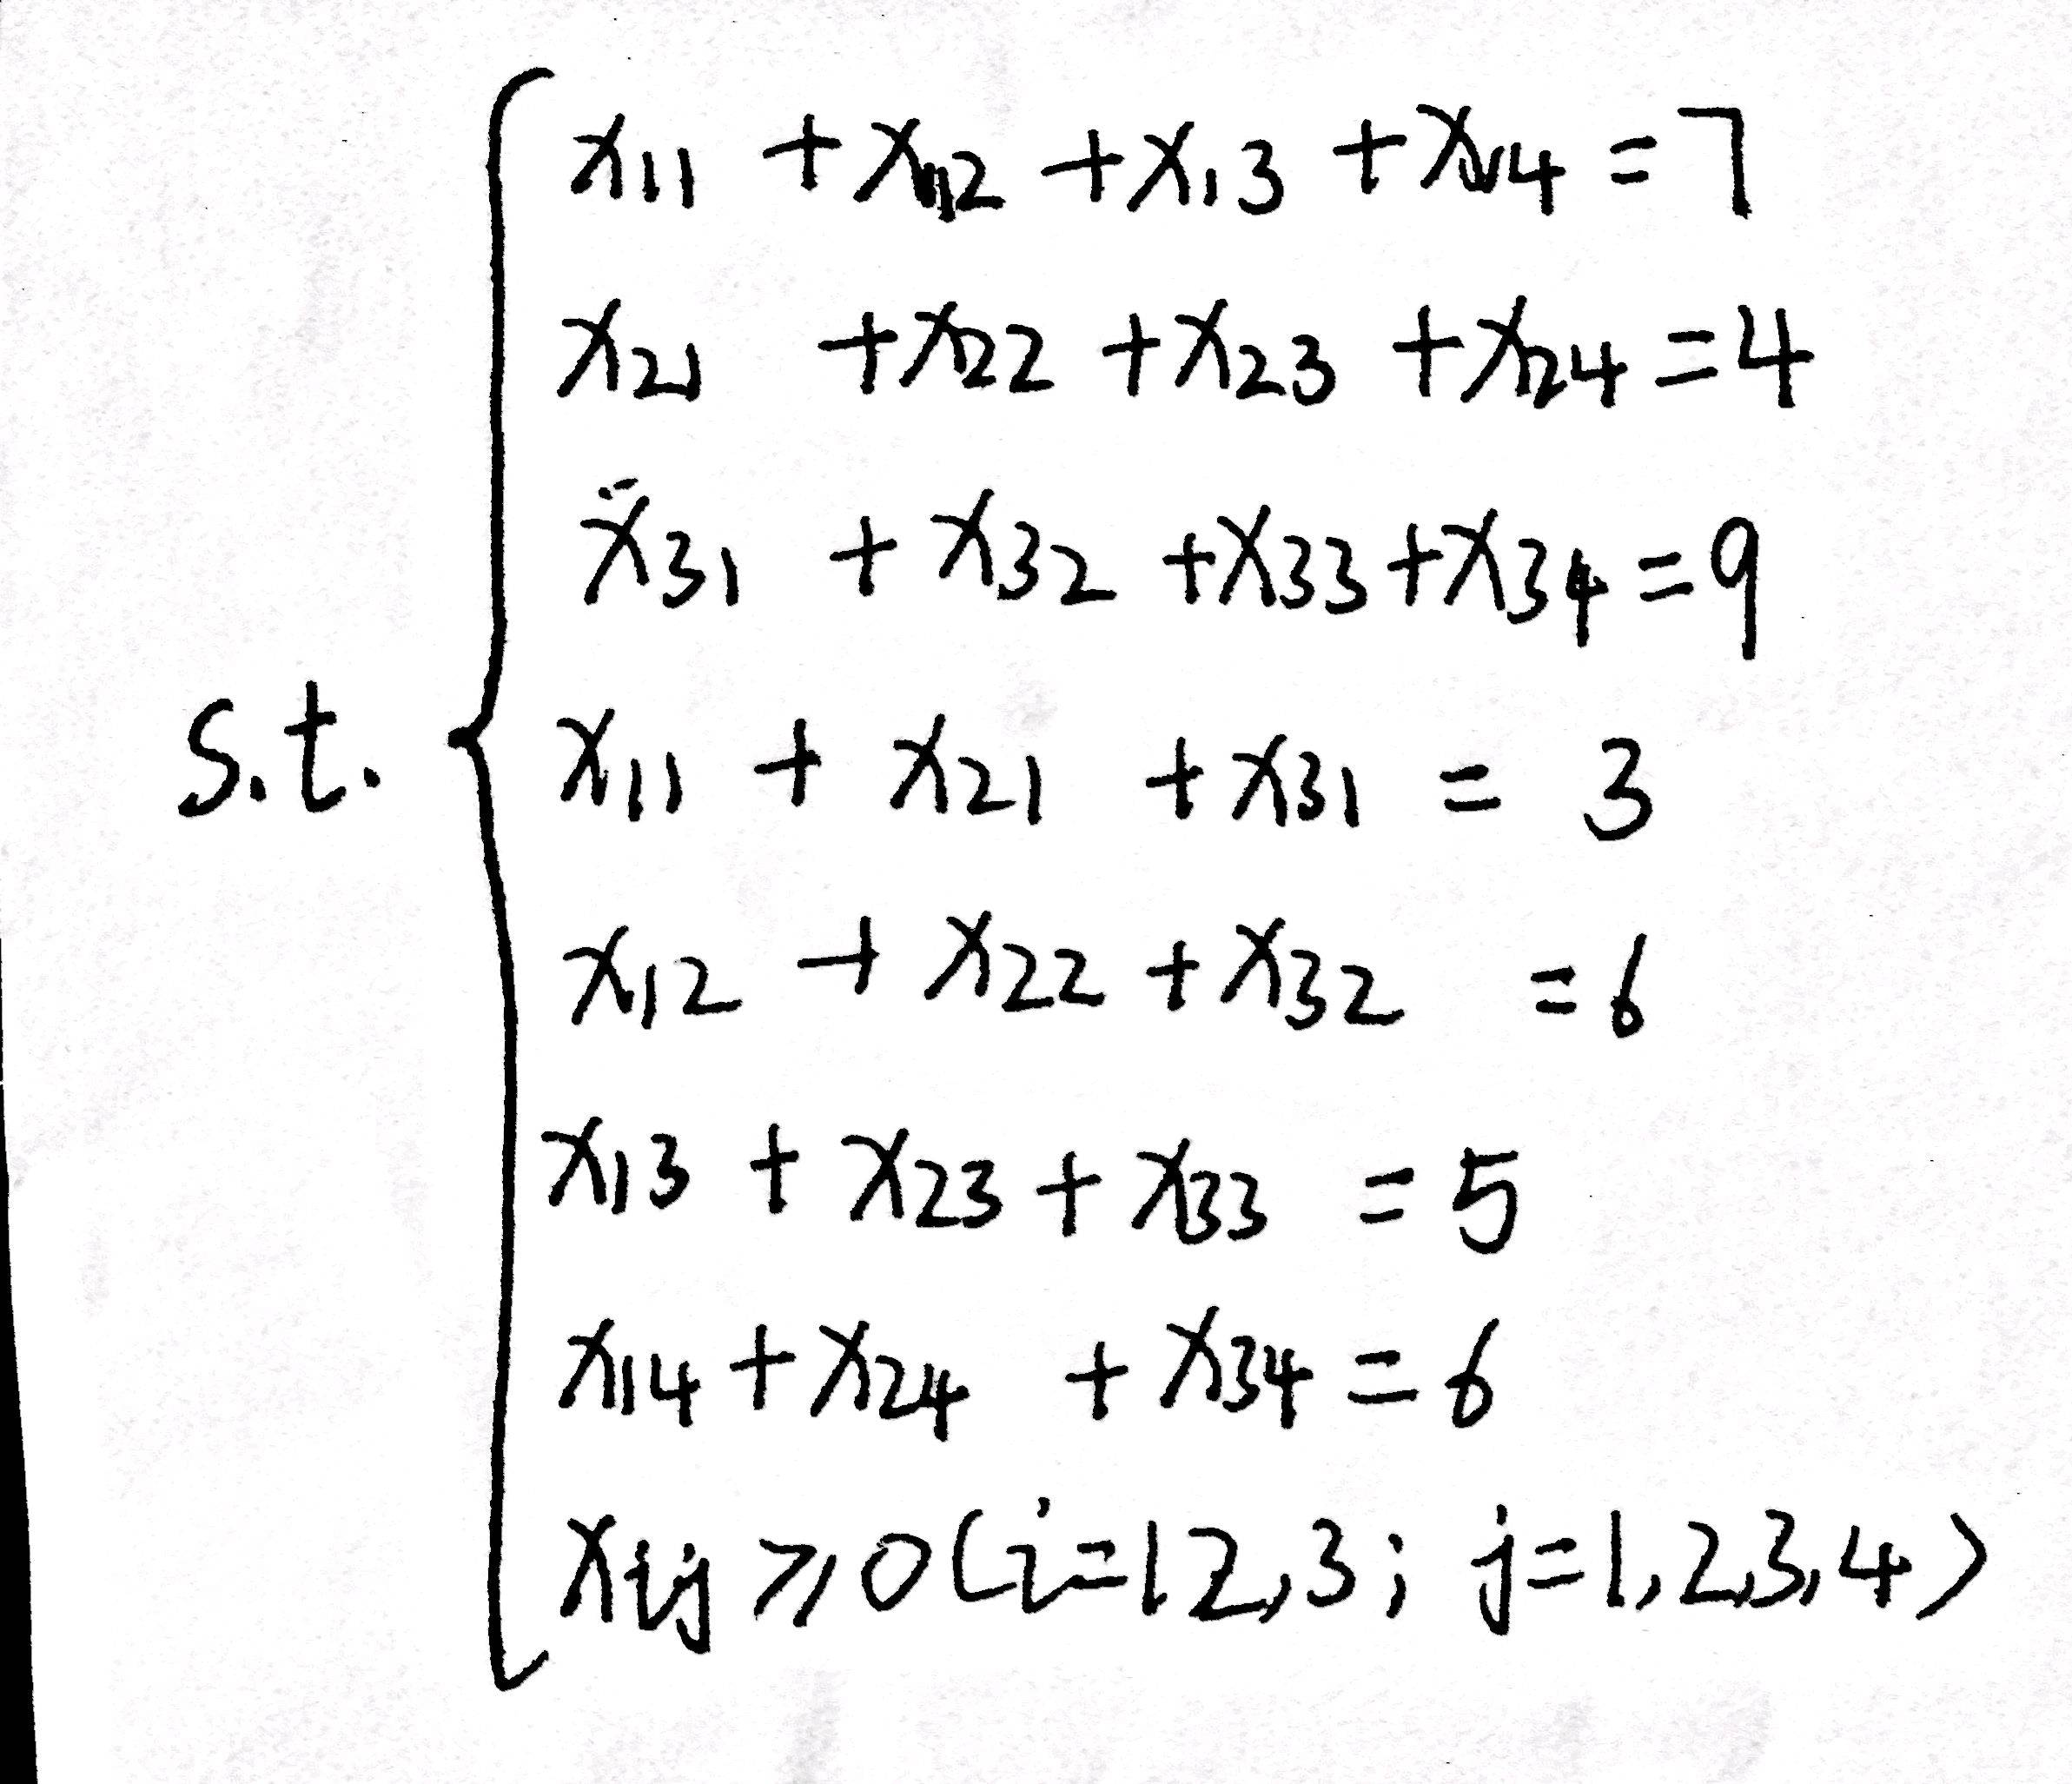 x11 + x12 + x13 + x14 = 7
x21 + x22 + x23 + x24 = 4
x31 + x32 + x33 + x34 = 9
s.t. x11 + x21 + x31 = 3
x12 + x22 + x32 = 6
x13 + x23 + x33 = 5
x14 + x24 + x34 = 6
xij ≥ 0 (i=1 2,3; j=1,2,3,4)